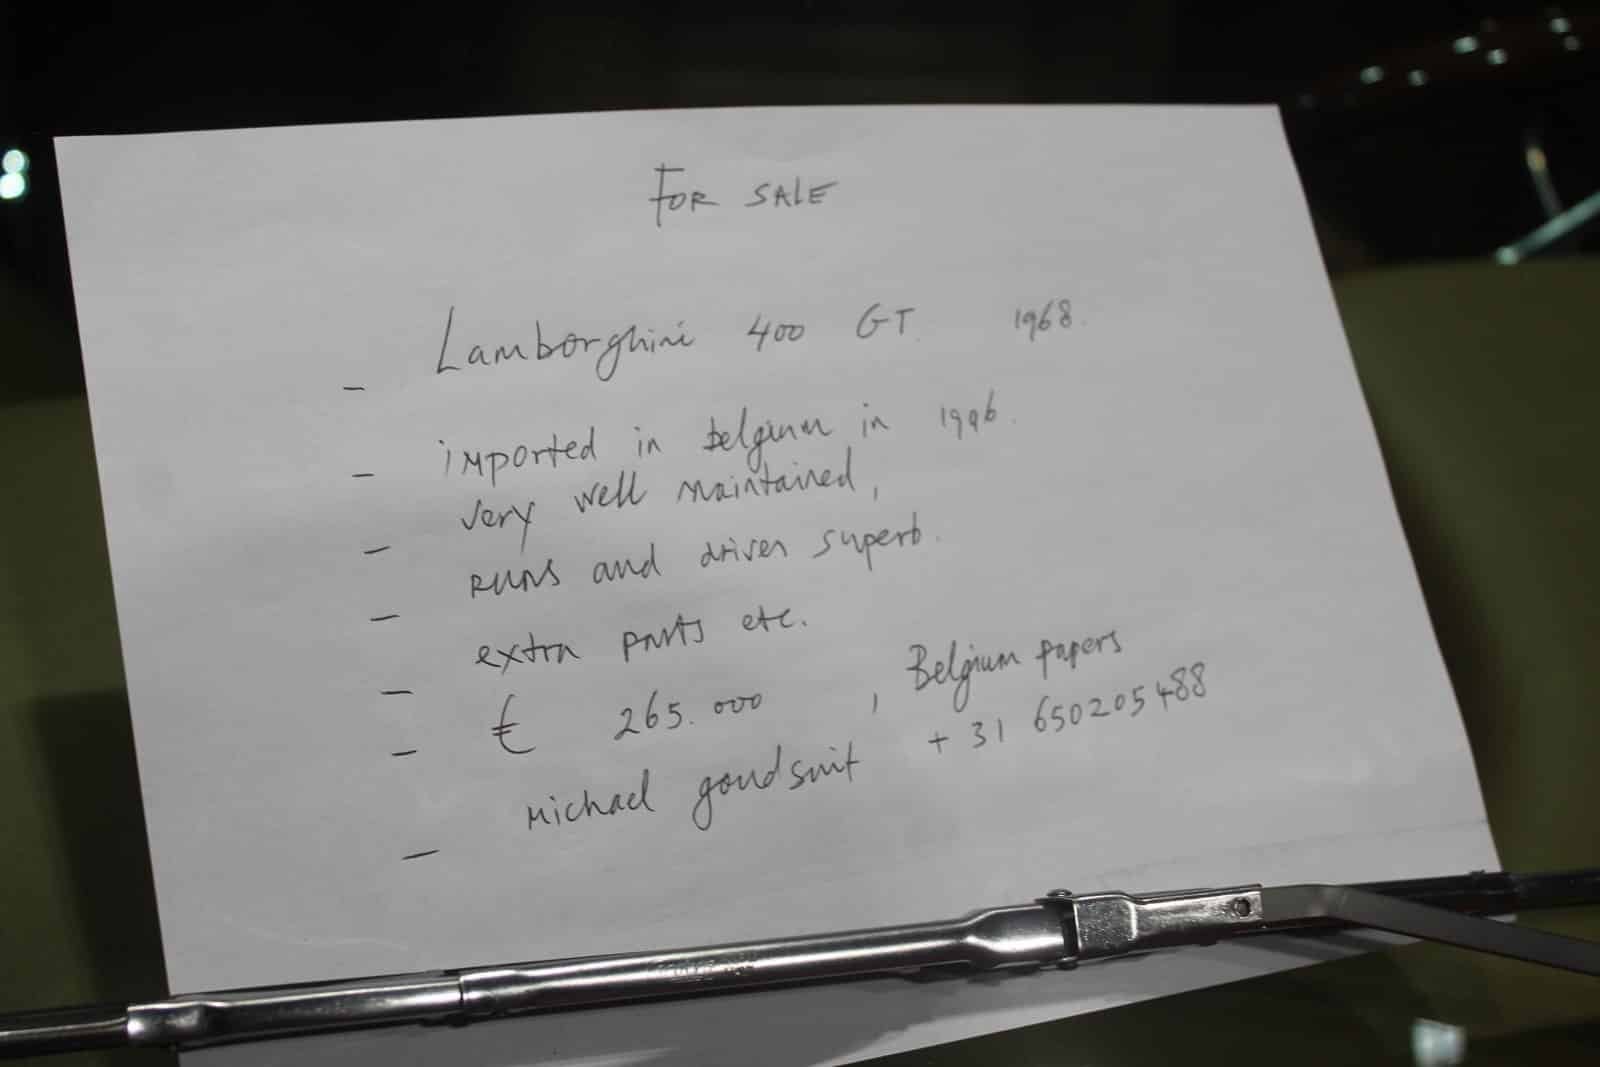 FOR SALE
- Lamborghini 400 GT. 1968.
- imported in belgium in 1996.
- very well maintained,
- RUNS and drives superb.
- extra parts etc.
- € 265.000 , Belgium papers
- Michael goudsmit +31 650205488